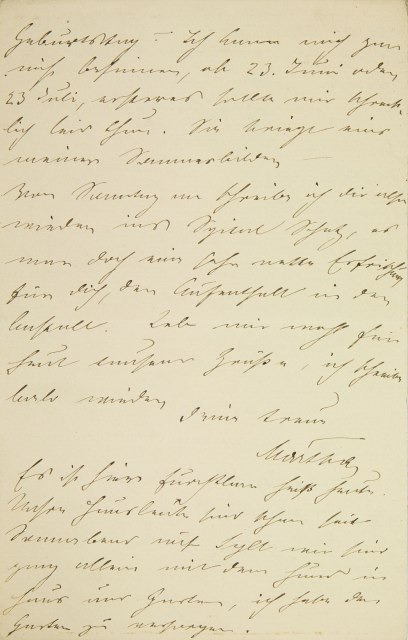 Geburtstag – Ich kann mich gar
nicht besinnen, ob 23. Juni oder
23 Juli, ersteres sollte mir schreck-
lich leid thun. Sie kriegt eins
meiner Sommerbilder –
Von Sonntag an schreibe ich dir also
wieder ins Spital Schatz, es
war doch eine sehr nette Erfrischung
für dich, der Aufenthalt in der
Anstalt. Lebe mir wohl für
heut tausend Grüße, ich schreibe
bald wieder
Deine treue
Martha
Es ist hier furchtbar heiß heute.
Unsere Hausleute sind schon seit
Sonnabend auf Sylt wir sind
ganz allein mit dem Hund in
Haus und Garten, ich habe den
Garten zu versorgen.